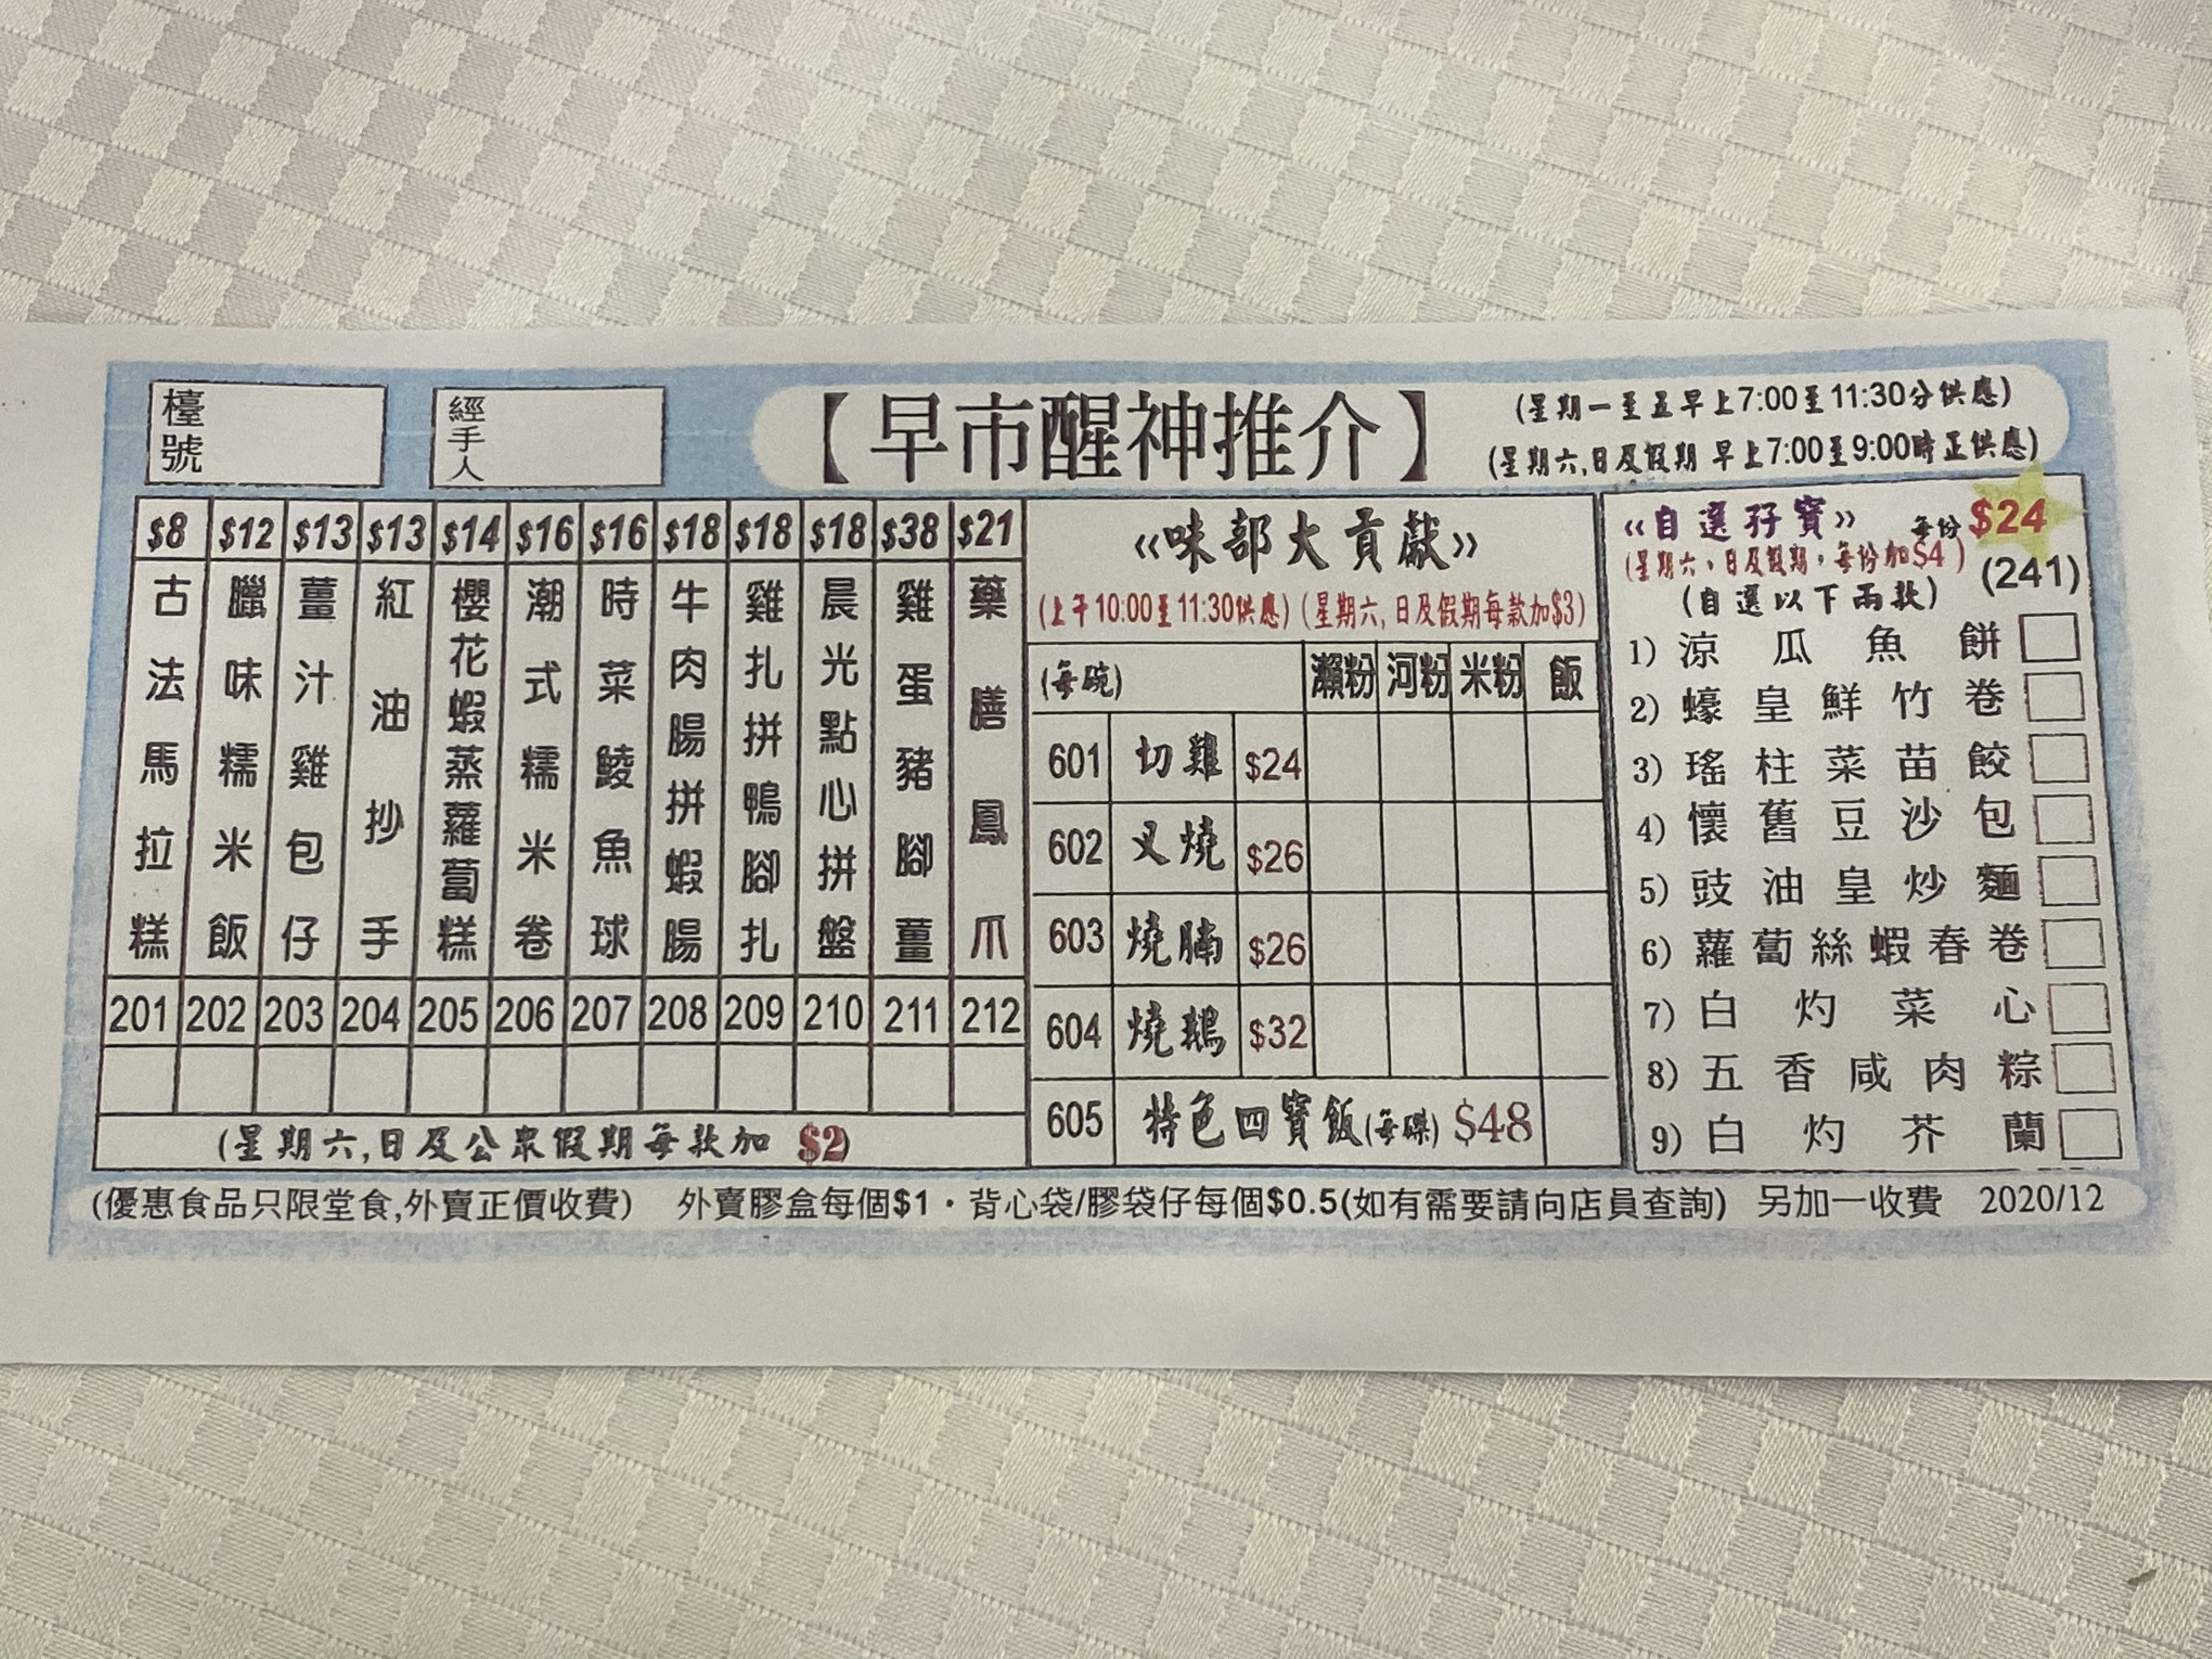 檯號
經手人
【早市醒神推介】
(星期一至五早上7:00至11:30分供應)
(星期六,日及假期 早上7:00至9:00時正供應)
$8 $12 $13 $13 $14 $16 $16 $18 $18 $18 $38 $21
古法馬拉糕
臘味糯米飯
薑汁雞包仔
紅油抄手
櫻花蝦蒸蘿蔔糕
潮式糯米卷
時菜鯪魚球
牛肉腸拼蝦腸
雞扎拼鴨腳扎
晨光點心拼盤
雞蛋豬腳薑
藥膳鳳爪
201 202 203 204 205 206 207 208 209 210 211 212
(星期六,日及公眾假期每款加 $2)
«味部大貢獻»
(上午10:00至11:30供應) (星期六, 日及假期每款加$3)
(每碗) 瀨粉 河粉 米粉 飯
601 切雞 $24
602 叉燒 $26
603 燒腩 $26
604 燒鵝 $32
605 特色四寶飯(每碟) $48
«自選孖寶» 每份$24
(星期六,日及假期,每份加$4)
(241)
(自選以下兩款)
1) 涼瓜魚餅
2) 蠔皇鮮竹卷
3) 瑤柱菜苗餃
4) 懷舊豆沙包
5) 豉油皇炒麵
6) 蘿蔔絲蝦春卷
7) 白灼菜心
8) 五香咸肉粽
9) 白灼芥蘭
(優惠食品只限堂食,外賣正價收費) 外賣膠盒每個$1・背心袋/膠袋仔每個$0.5(如有需要請向店員查詢) 另加一收費 2020/12